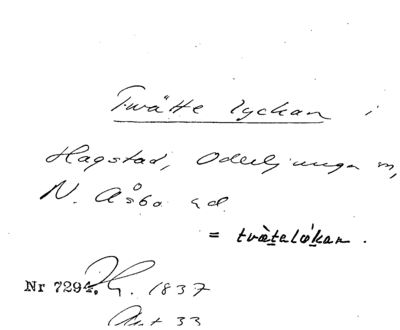 Twätte lyckan i
Hagstad, Oderljunga sn,
N. Åsbo hd.
= tvàtalókan.
Nr 7294. 1837
Akt 33